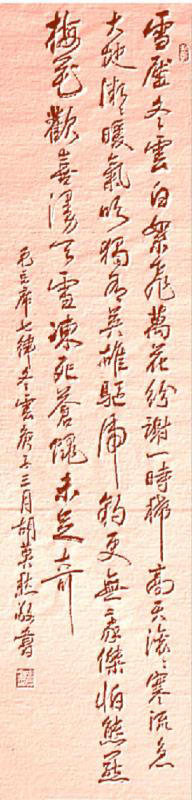 雪壓冬雲白絮飛萬花紛謝一時稀高天滾々寒流急
大地微々暖氣吹獨有英雄驅虎豹更無豪傑怕熊羆
梅花歡喜漫天雪凍死蒼蠅未足奇
毛主席七律冬雲庚子三月胡英敬書